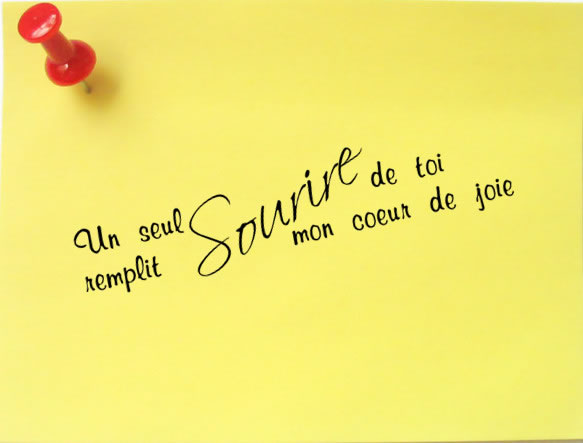 Un seul Sourire de toi
remplit mon coeur de joie